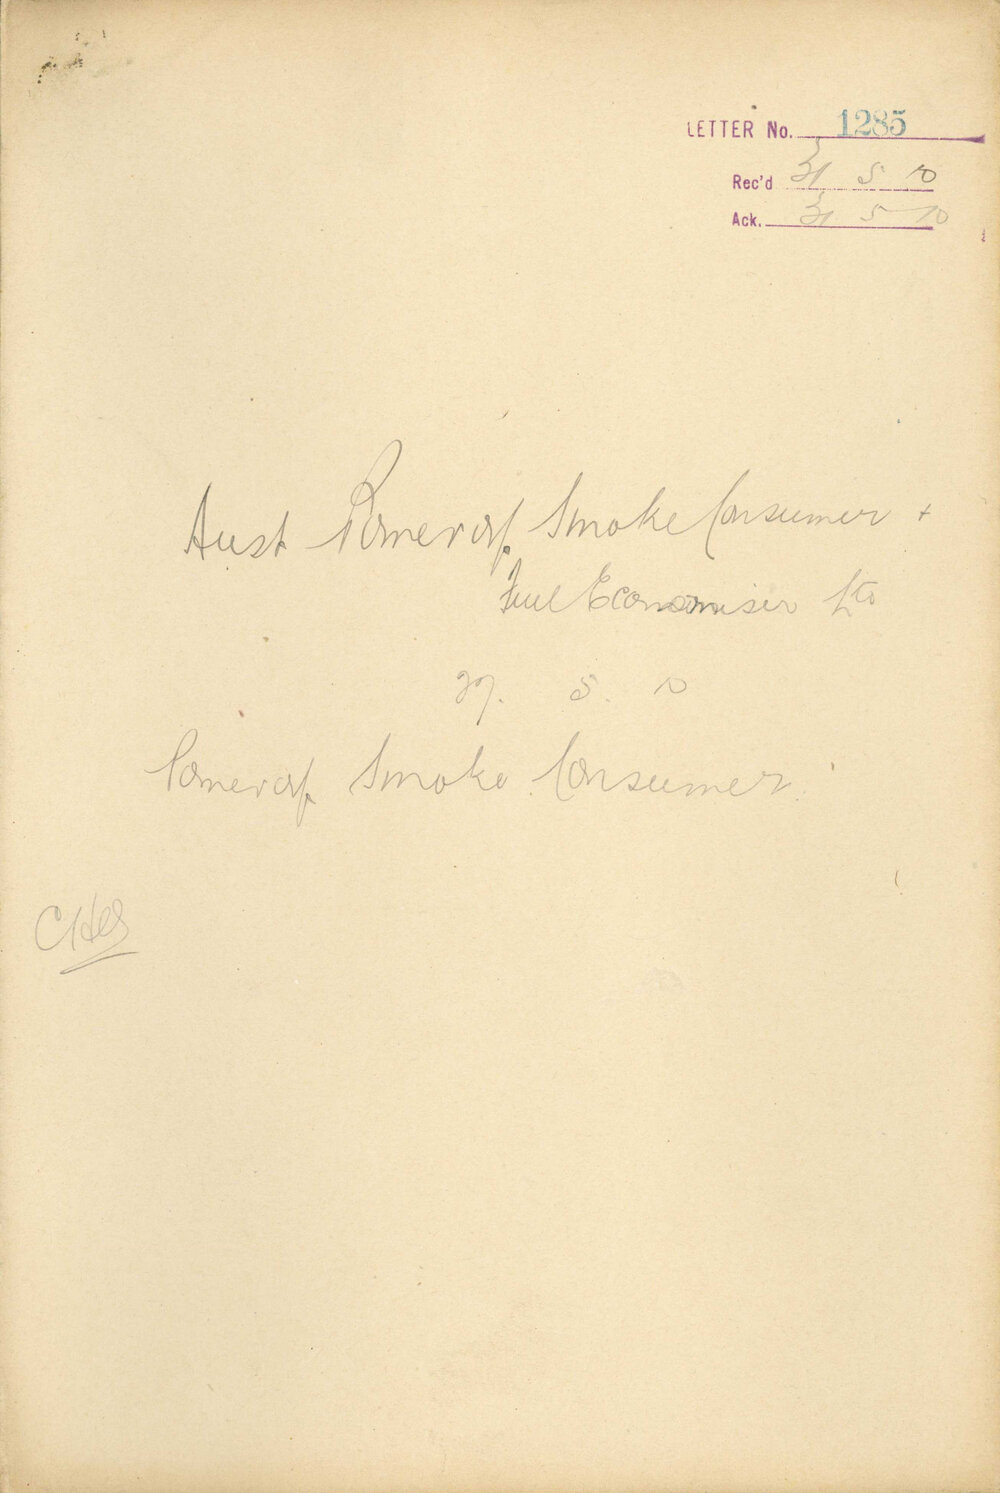 LETTER No. 1285
Rec'd 31 5 10
Ack. 31 5 10
Aust Pomeroy Smoke Consumer +
Fuel Economiser Ltd
27. 5. 10
Pomeroy Smoke Consumer